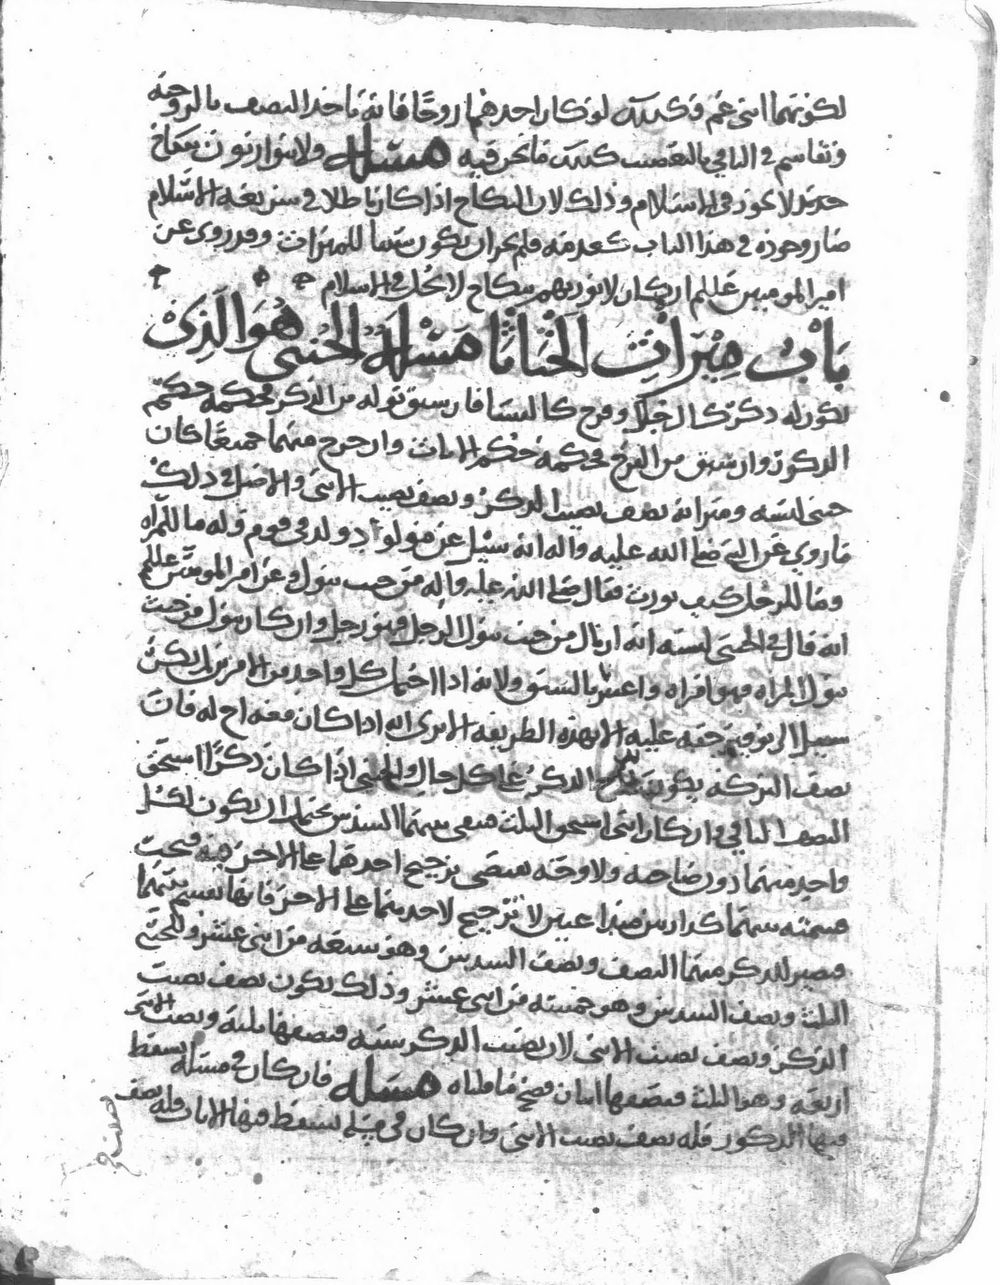 لكونهما ابني عم وكذلك لو كان احدهما زوجًا فانه ياخذ النصف بالزوجية
وتقاسم في الباقي بالتعصيب كذلك ما نحن فيه مسئلة ولا يتوارثون بنكاح
لا يجوز في الاسلام وذلك لان النكاح اذا كان باطلا في شريعة الاسلام
صار وجوده في هذا الباب كعدمه فلم يجز ان يكون سببا للميراث وقد روي عن
امير المومنين عللم انه كان لا يورثهم بنكاح لا يحل في الاسلام
باب ميراث الخناثا مسئلة الخنثى هو الذي
يكون له ذكر كالرجل وفرج كالنسا فان سبق بوله من الذكر فحكمه حكم
الذكور وان سبق من الفرج فحكمه حكم الاناث وان خرج منهما جميعًا كان
خنثى لبسه وميراثه نصف نصيب الذكر ونصف نصيب الانثى والاصل في ذلك
ما روي عن النبي صلى الله عليه واله انه سئل عن مولود ولد في قوم وله ما للمراه
وما للرجل كيف يورث فقال صلى الله عليه واله من حيث يبول وعن امير المومنين عللم
انه قال في الخنثى لبسه انه ان بال من حيث يبول الرجل فهو رجل وان كان يبول من حيث
تبول المراه فهو امراه واعتبر بالسبق ولانه اذا احتمل كل واحد من الامرين لم يكن
سبيل الى توفير حقه عليه الا بهذه الطريقه الا ترى انه اذا كان معه اخ له فان
نصف التركه يكون الذكر على كل حال والخنثى اذا كان ذكرًا استحق
النصف الباقي وان كان انثى استحق الثلث فبقي بينهما السدس يحتمل ان يكون لكل
واحد منهما دون صاحبه ولا وجه يقتضي ترجيح احدهما على الاخر فيه فيجب
قسمته بينهما كدار بين يدا عيين لا ترجيح لاحدهما على الاخر فانها تقسم بينهما
فيصير للذكر منهما النصف ونصف السدس وهو سبعه من اثنى عشر وللخنثى
الثلث ونصف السدس وهو خمسه من اثنى عشر وذلك يكون نصف نصيب
الذكر ونصف نصيب الانثى لان نصيب الذكر سته فنصفها ثلثه ونصيب الانثى
اربعه وهو الثلث فنصفها اثنان فصح ما قلناه مسئلة فان كان في مسئلة يسقط
فيها الذكور فله نصف نصيب الانثى وان كان في مسئلة يسقط فيها الاناث فله نصف